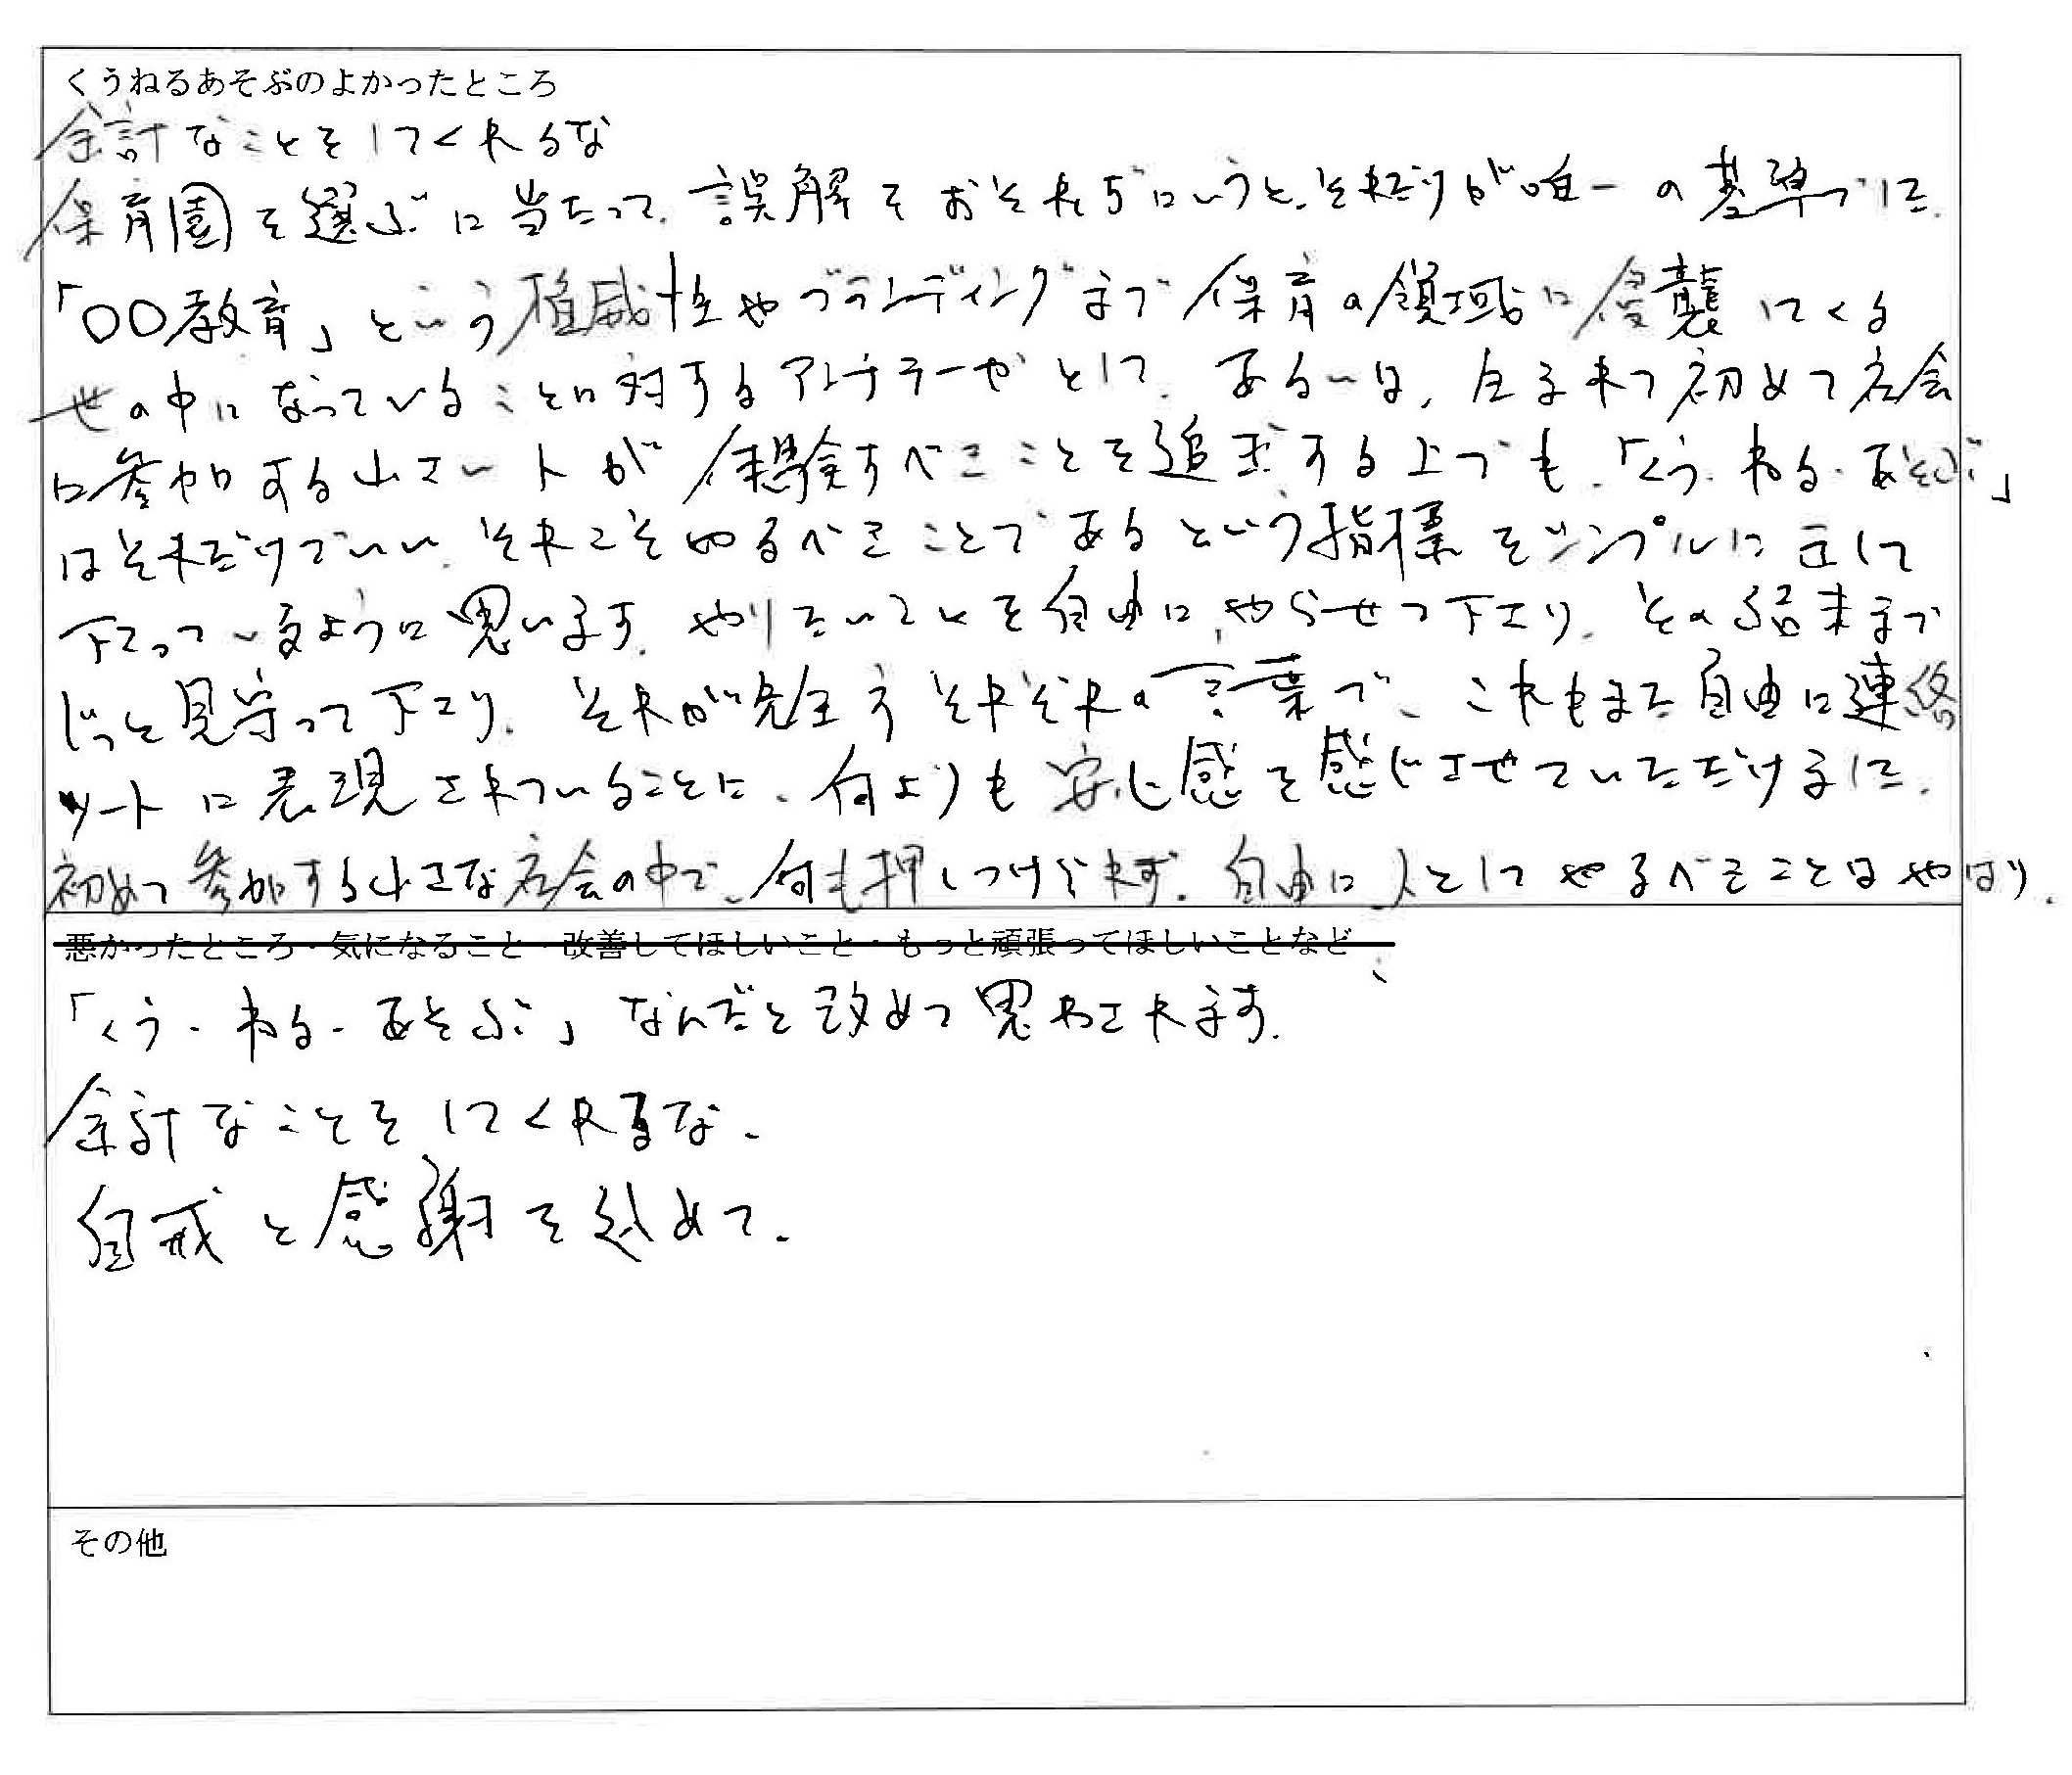 くうねるあそぶのよかったところ
余計なことをしてくれるな
保育園を選ぶに当たって、誤解をおそれずにいうと、それだけが唯一の基準でした。
「〇〇教育」という権威性やブランディングまで保育の領域に侵襲してくる
世の中になっていることに対するアンチテーゼとして、あるいは、生まれて初めて社会
に参加する小さい人が体験すべきことを追求する上でも、「くう・ねる・あそぶ」
はそれだけでいい、それこそやるべきことであるという指標をシンプルに示して
下さっているように思います。やりたいことを自由にやらせて下さり、その結末まで
じっと見守って下さり、それが先生方それぞれの言葉で、これもまた自由に連絡
ノートに表現されていることに、何よりも安心感を感じさせていただけました。
初めて参加する小さな社会の中で、何も押しつけられず、自由に人としてやるべきことはやはり、
悪かったところ・気になること・改善してほしいこと・もっと頑張ってほしいことなど
「くう・ねる・あそぶ」なんだと改めて思わされます。
余計なことをしてくれるな、
自戒と感謝を込めて。
その他